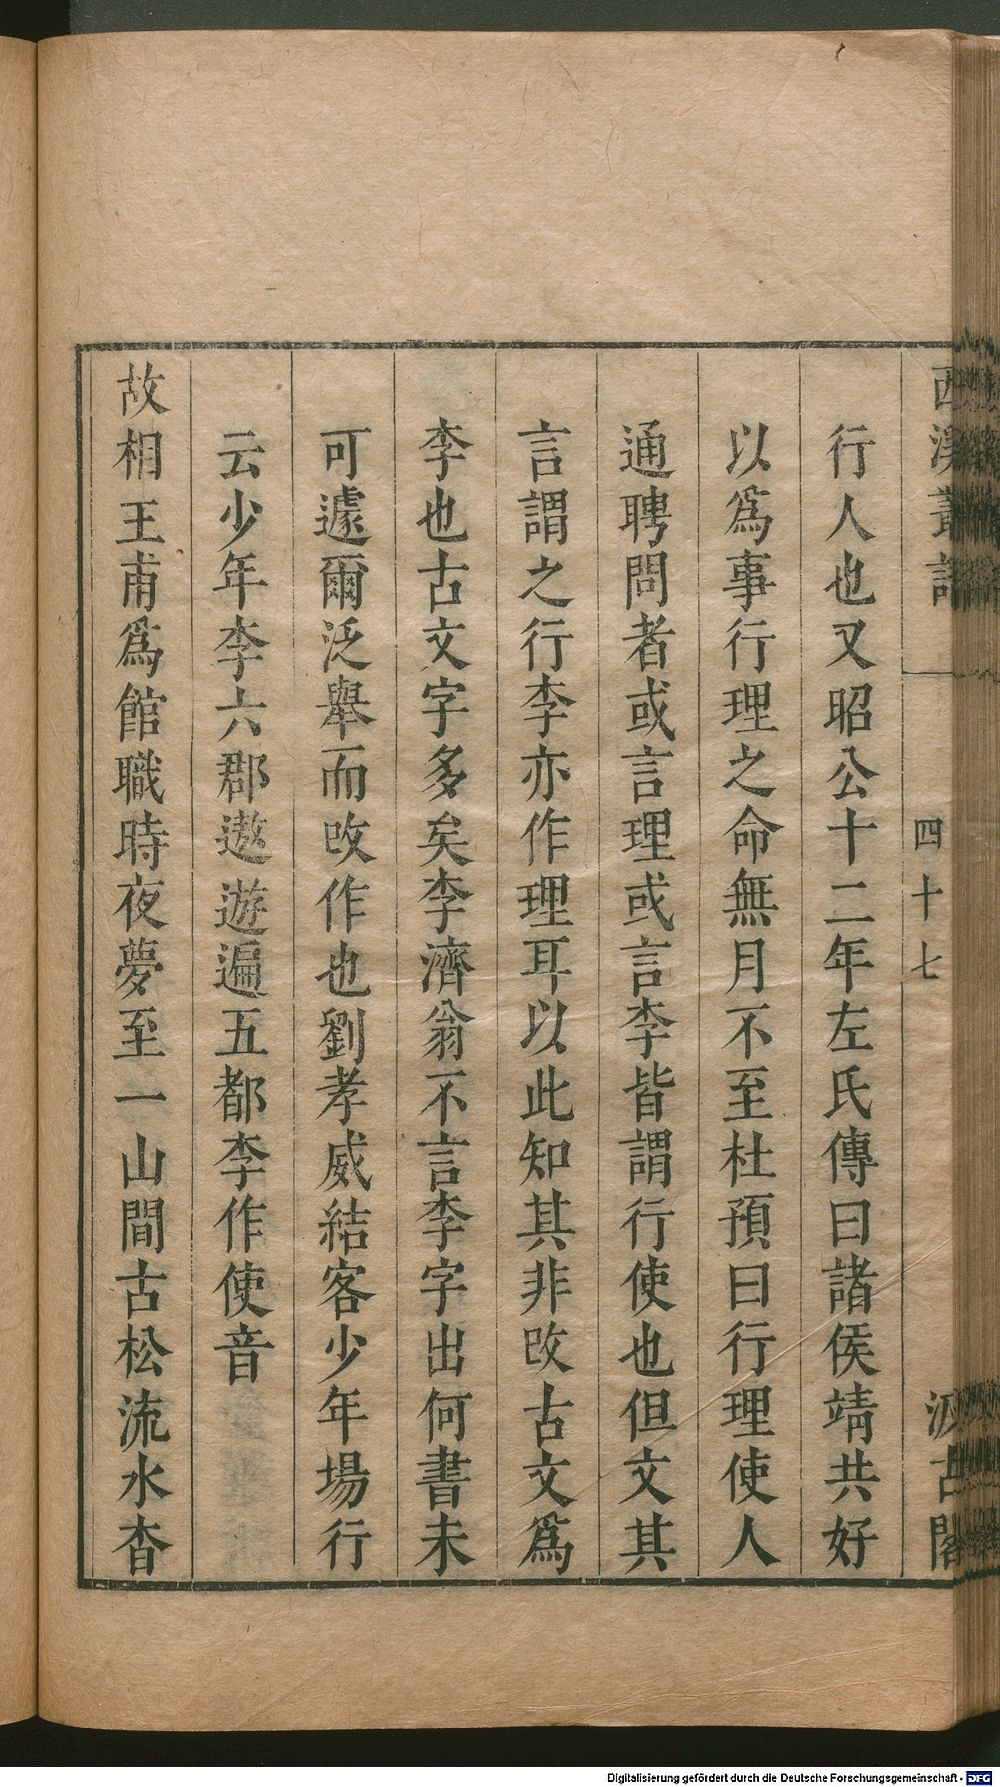 西溪叢語
四十七
汲古閣
行人也又昭公十二年左氏傳曰諸侯靖共好
以爲事行理之命無月不至杜預曰行理使人
通聘問者或言理或言李皆謂行使也但文其
言謂之行李亦作理耳以此知其非改古文爲
李也古文字多矣李濟翁不言李字出何書未
可遽爾泛舉而改作也劉孝威結客少年場行
云少年李六郡遨遊遍五都李作使音
故相王甫爲館職時夜夢至一山間古松流水杳
Digitalisierung gefördert durch die Deutsche Forschungsgemeinschaft - DFG